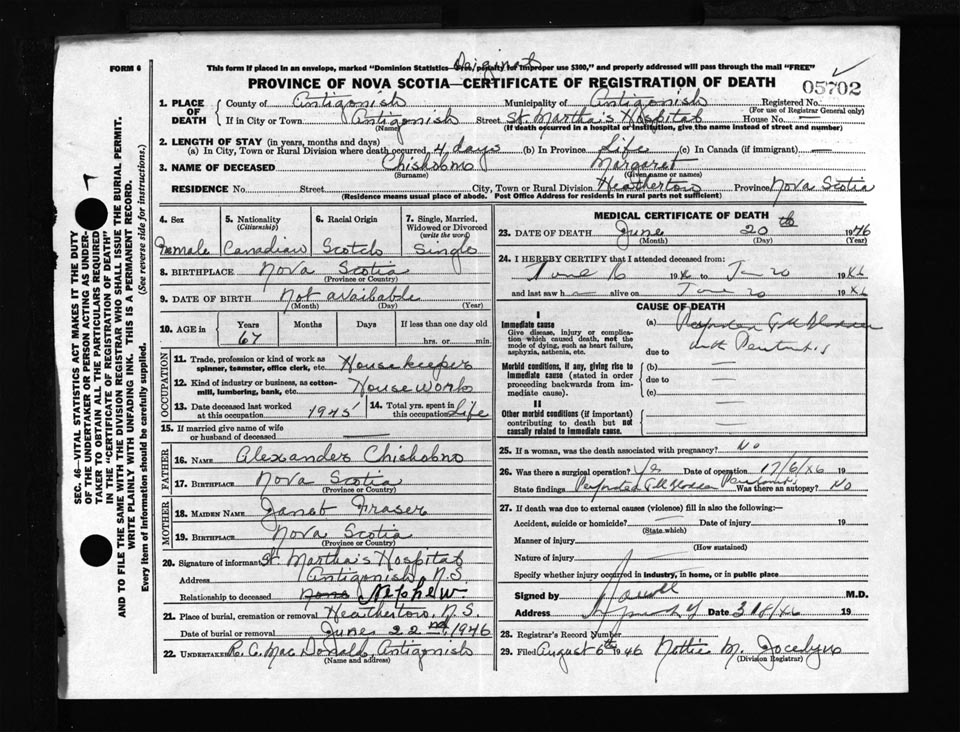 Original
FORM 6
This form If placed in an envelope, marked "Dominion Statistics—Free, penalty for improper use $300," and properly addressed will pass through the mail "FREE"
PROVINCE OF NOVA SCOTIA—CERTIFICATE OF REGISTRATION OF DEATH
05702
1. PLACE OF DEATH
County of Antigonish Municipality of Antigonish Registered No.
(For use of Registrar General only)
If in City or Town Antigonish Street St. Martha's Hospital House No. —
(Name) (If death occurred in a hospital or institution, give the name instead of street and number)
2. LENGTH OF STAY (in years, months and days)
(a) In City, Town or Rural Division where death occurred 4 days (b) In Province Life (c) In Canada (if immigrant) —
3. NAME OF DECEASED Chisholm Margaret
(Surname) (Given name or names)
RESIDENCE No. Street City, Town or Rural Division Heatherton Province Nova Scotia
(Residence means usual place of abode. Post Office Address for residents in rural parts not sufficient)
4. Sex Female
5. Nationality (Citizenship) Canadian
6. Racial Origin Scotch
7. Single, Married, Widowed or Divorced (write the word) Single
8. BIRTHPLACE Nova Scotia
(Province or Country)
9. DATE OF BIRTH Not available
(Month) (Date) (Year)
10. AGE in Years 67 Months Days If less than one day old
hrs. or min.
OCCUPATION
11. Trade, profession or kind of work as spinner, teamster, office clerk, etc. Housekeeper
12. Kind of industry or business, as cotton-mill, lumbering, bank, etc. House Work
13. Date deceased last worked at this occupation 1945
14. Total yrs. spent in this occupation Life
15. If married give name of wife or husband of deceased —
FATHER
16. NAME Alexander Chisholm
17. BIRTHPLACE Nova Scotia
(Province or Country)
MOTHER
18. MAIDEN NAME Janet Fraser
19. BIRTHPLACE Nova Scotia
(Province or Country)
20. Signature of informant St. Martha's Hospital
Address Antigonish N.S.
Relationship to deceased None Nephew
21. Place of burial, cremation or removal Heatherton, N.S.
Date of burial or removal June 22nd, 1946
22. UNDERTAKER R. C. MacDonald, Antigonish
(Name and address)
MEDICAL CERTIFICATE OF DEATH
23. DATE OF DEATH June 20th 1946
(Month) (Day) (Year)
24. I HEREBY CERTIFY that I attended deceased from:
June 16 1946 to June 20 1946
and last saw h alive on June 20 1946
CAUSE OF DEATH
I
Immediate cause
Give disease, injury or complication which caused death, not the mode of dying, such as heart failure, asphyxia, asthenia, etc.
(a) Perforated Gall Bladder
with Peritonitis
due to
Morbid conditions, if any, giving rise to immediate cause (stated in order proceeding backwards from immediate cause).
(b) —
due to —
(c) —
II
Other morbid conditions (if important) contributing to death but not causally related to immediate cause.
25. If a woman, was the death associated with pregnancy? No
26. Was there a surgical operation? Yes Date of operation 17/6/46 19
State findings Perforated Gall Bladder Peritonitis Was there an autopsy? No
27. If death was due to external causes (violence) fill in also the following:—
Accident, suicide or homicide? Date of injury 19
(State which)
Manner of injury
(How sustained)
Nature of injury
Specify whether injury occurred in industry, in home, or in public place
Signed by M.D.
Address Date 3/8/46 19
28. Registrar's Record Number
29. Filed August 6th 1946 Nottie M. Jocelyn
(Division Registrar)
SEC. 46—VITAL STATISTICS ACT MAKES IT THE DUTY
OF THE UNDERTAKER OR PERSON ACTING AS UNDER-
TAKER TO OBTAIN ALL THE PARTICULARS REQUIRED
IN THE "CERTIFICATE OF REGISTRATION OF DEATH"
AND TO FILE THE SAME WITH THE DIVISION REGISTRAR WHO SHALL ISSUE THE BURIAL PERMIT.
WRITE PLAINLY WITH UNFADING INK. THIS IS A PERMANENT RECORD.
Every item of Information should be carefully supplied. (See reverse side for instructions.)